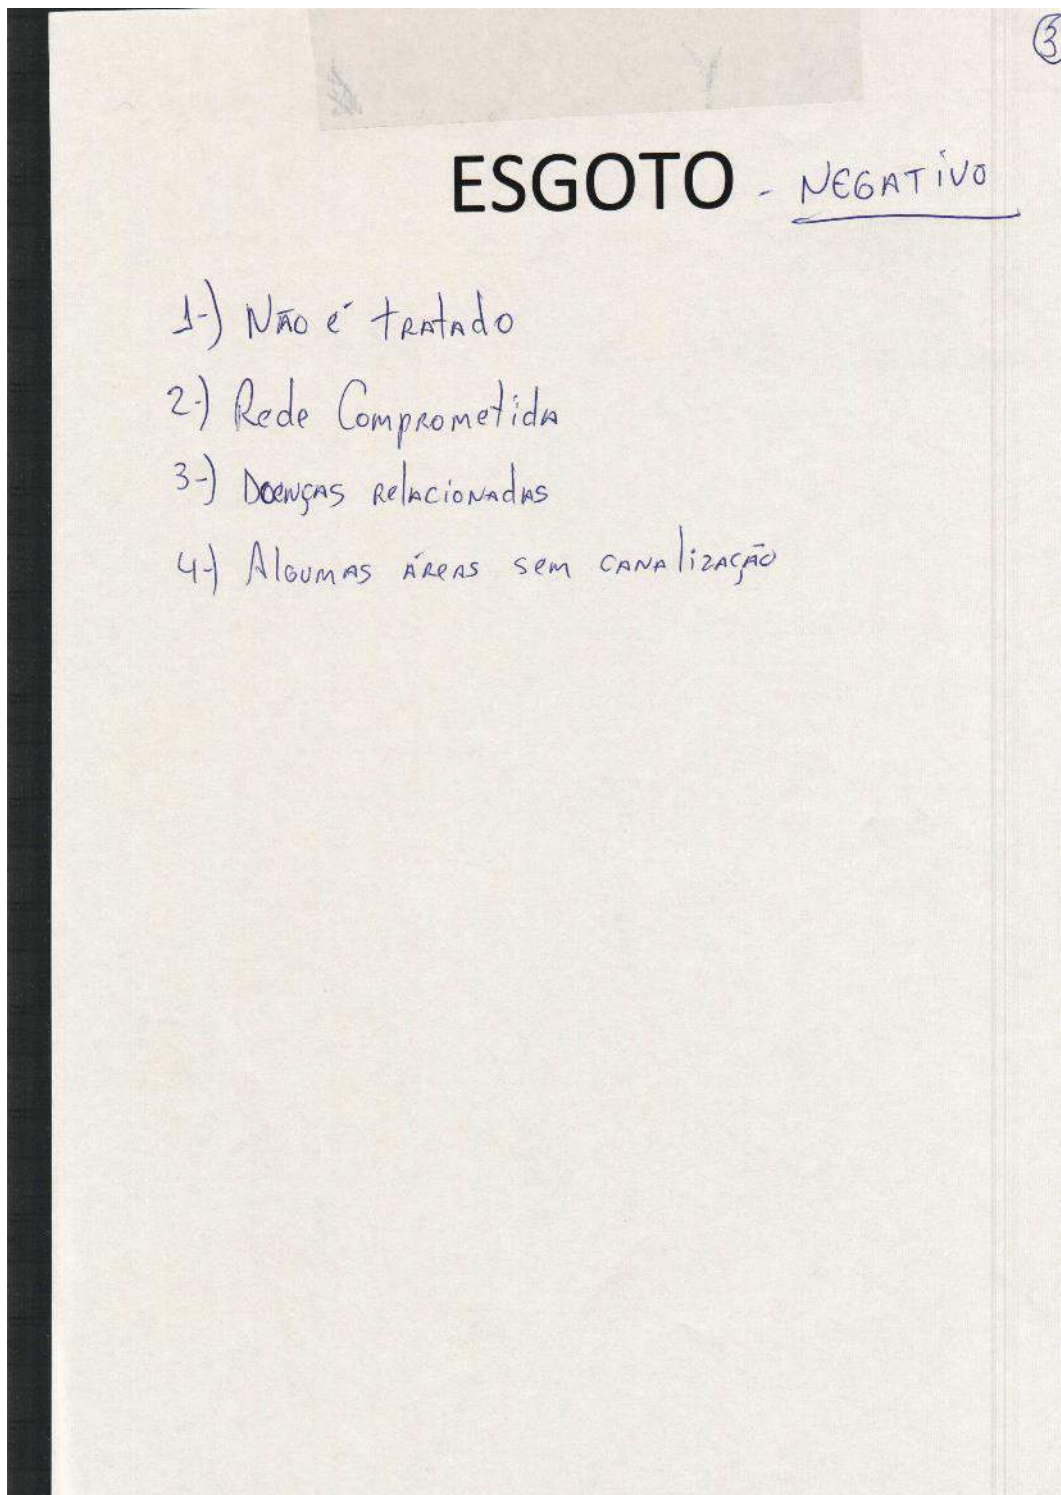 3
ESGOTO - NEGATIVO
1-) NÃO é tRAtAdo
2-) Rede CompRometidA
3-) DoeNçAS RelAcioNAdAS
4-) AlgumAS áReAS sem cANAlizAçÃo